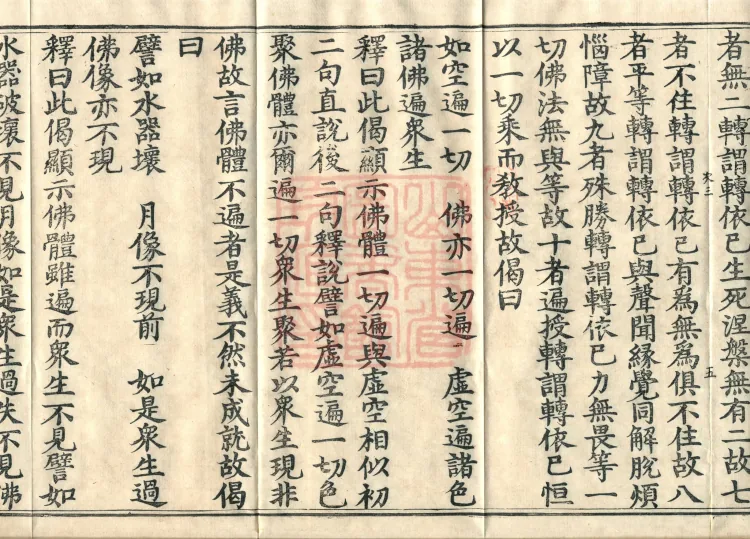 者無二轉謂轉依已生死涅槃無有二故七
者不住轉謂轉依已有為無為俱不住故八
者平等轉謂轉依已與聲聞緣覺同解脫煩
五
惱障故九者殊勝轉謂轉依已力無畏等一
切佛法無與等故十者遍授轉謂轉依已恒
以一切乘而教授故偈曰
如空遍一切　佛亦一切遍　虛空遍諸色
諸佛遍衆生
釋曰此偈顯示佛體一切遍與虛空相似初
二句直說後二句釋說譬如虛空遍一切色
聚佛體亦爾遍一切衆生聚若以衆生現非
佛故言佛體不遍者是義不然未成就故偈
曰
譬如水器壞　月像不現前　如是衆生過
佛像亦不現
釋曰此偈顯示佛體雖遍而衆生不見譬如
水器破壞不見月像如是衆生過失不見佛